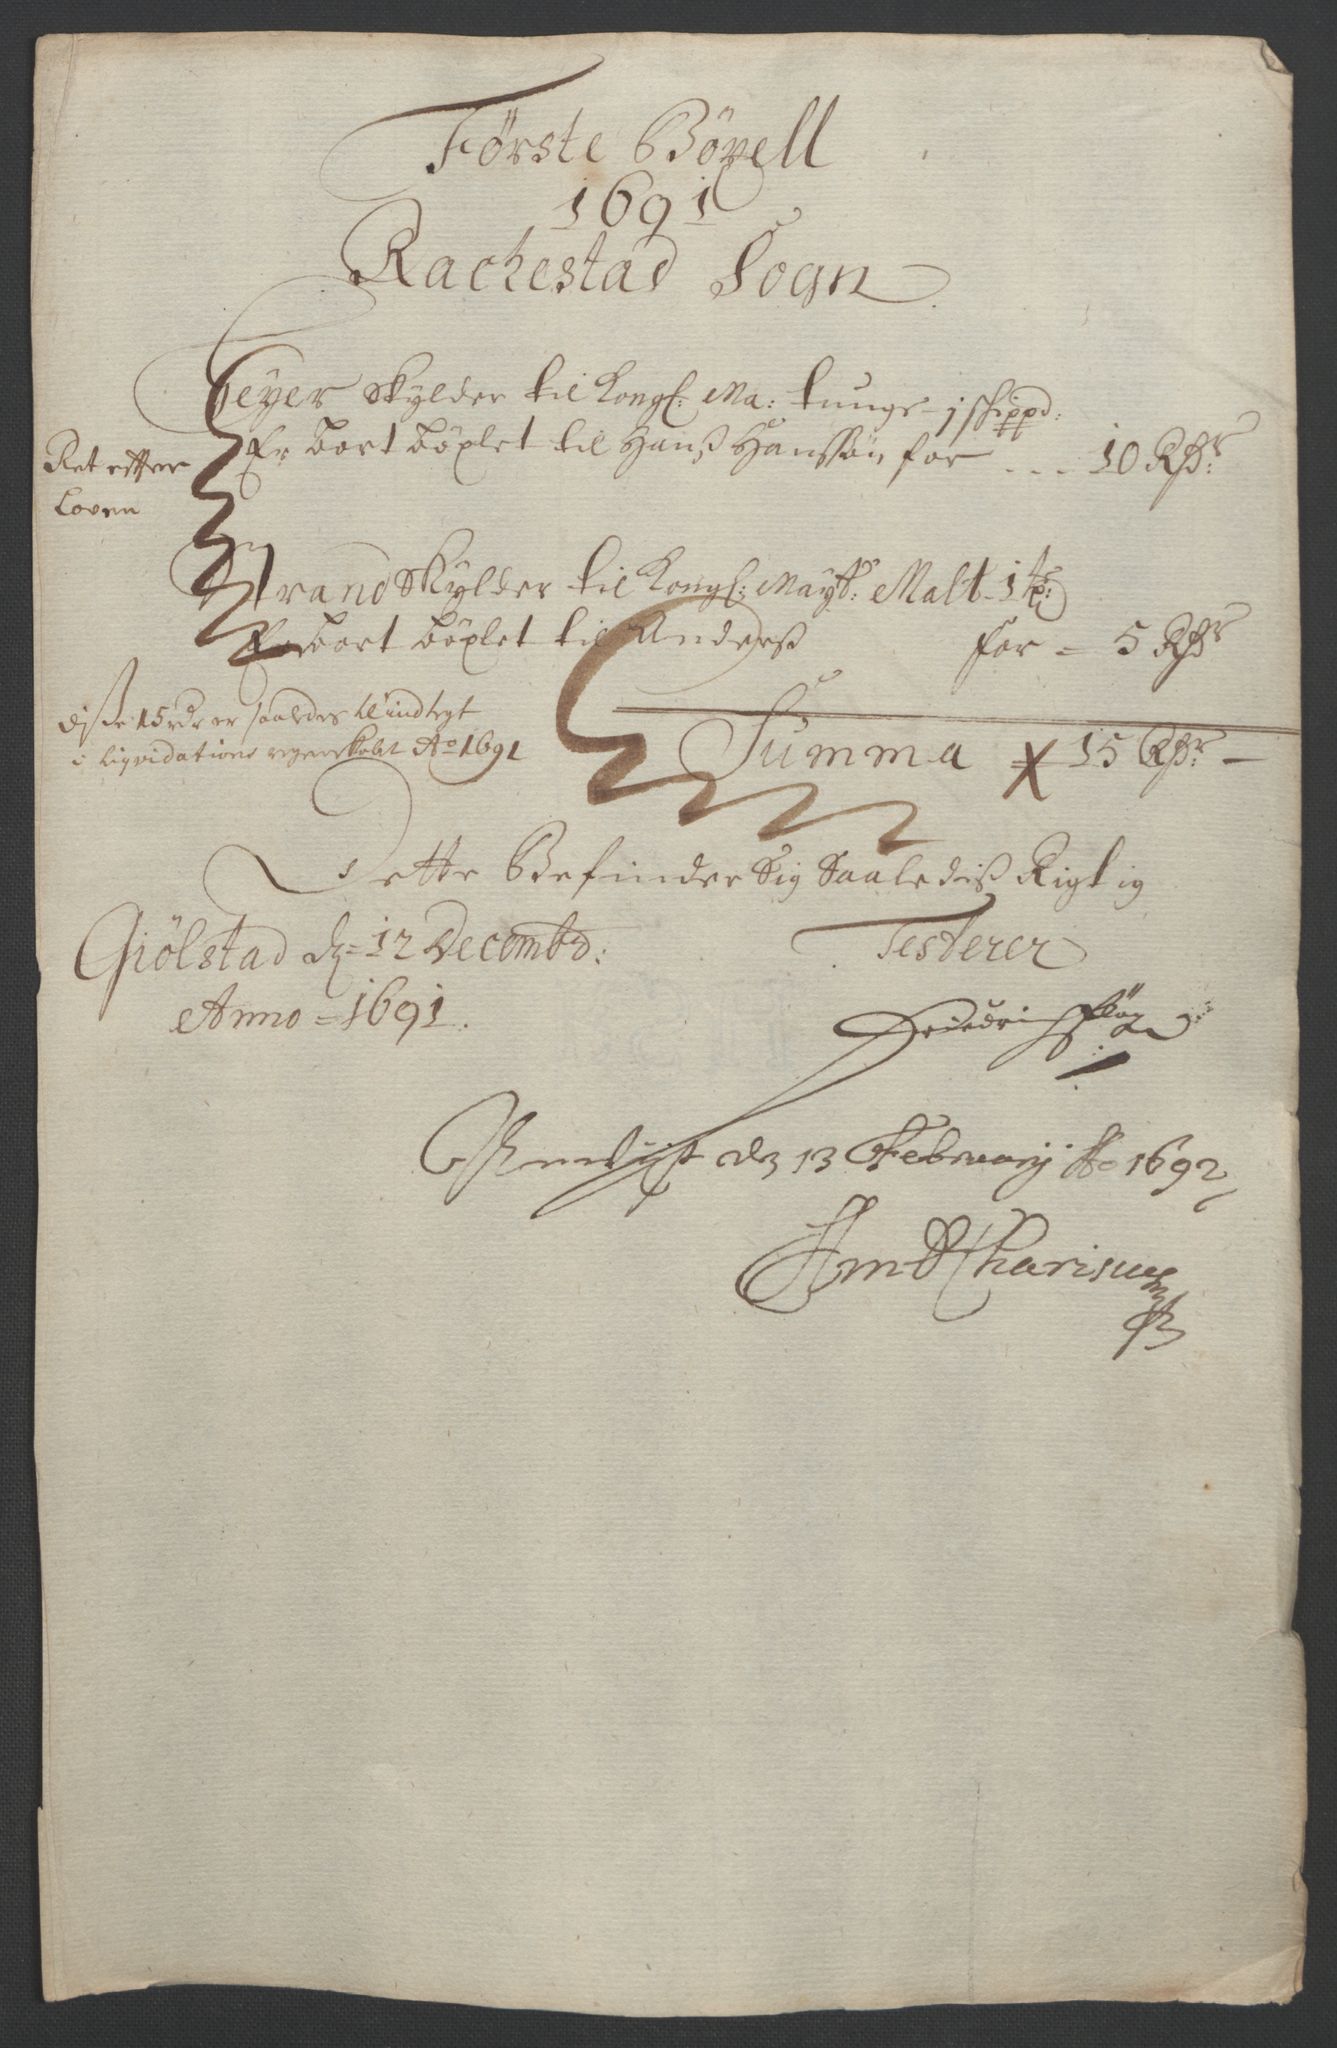 Første Bøxell
1691
Rachestad Sogn
Heyer Skylder til Kongl: Ma: tunge - 1 schippd:
Er bort bøxlet til Hanß Hanssøn for - - - 10 Rdr:
Ret efter
Loven
Strand Skylder til Kongl: Mayts: Malt - 1 tp:
Er bort bøxlet til Anderß for = 5 Rdr
disse 15 rdr er saaledes til indtegt
i liqvidations regenskabet Ao 1691
Summa 15 Rdr: -
Dette Befinder Sig Saaledis Rigtig
Giølstad dn = 12 Decembr:
Testerer
Anno = 1691.
Friedrich
den 13 February Ao 1692